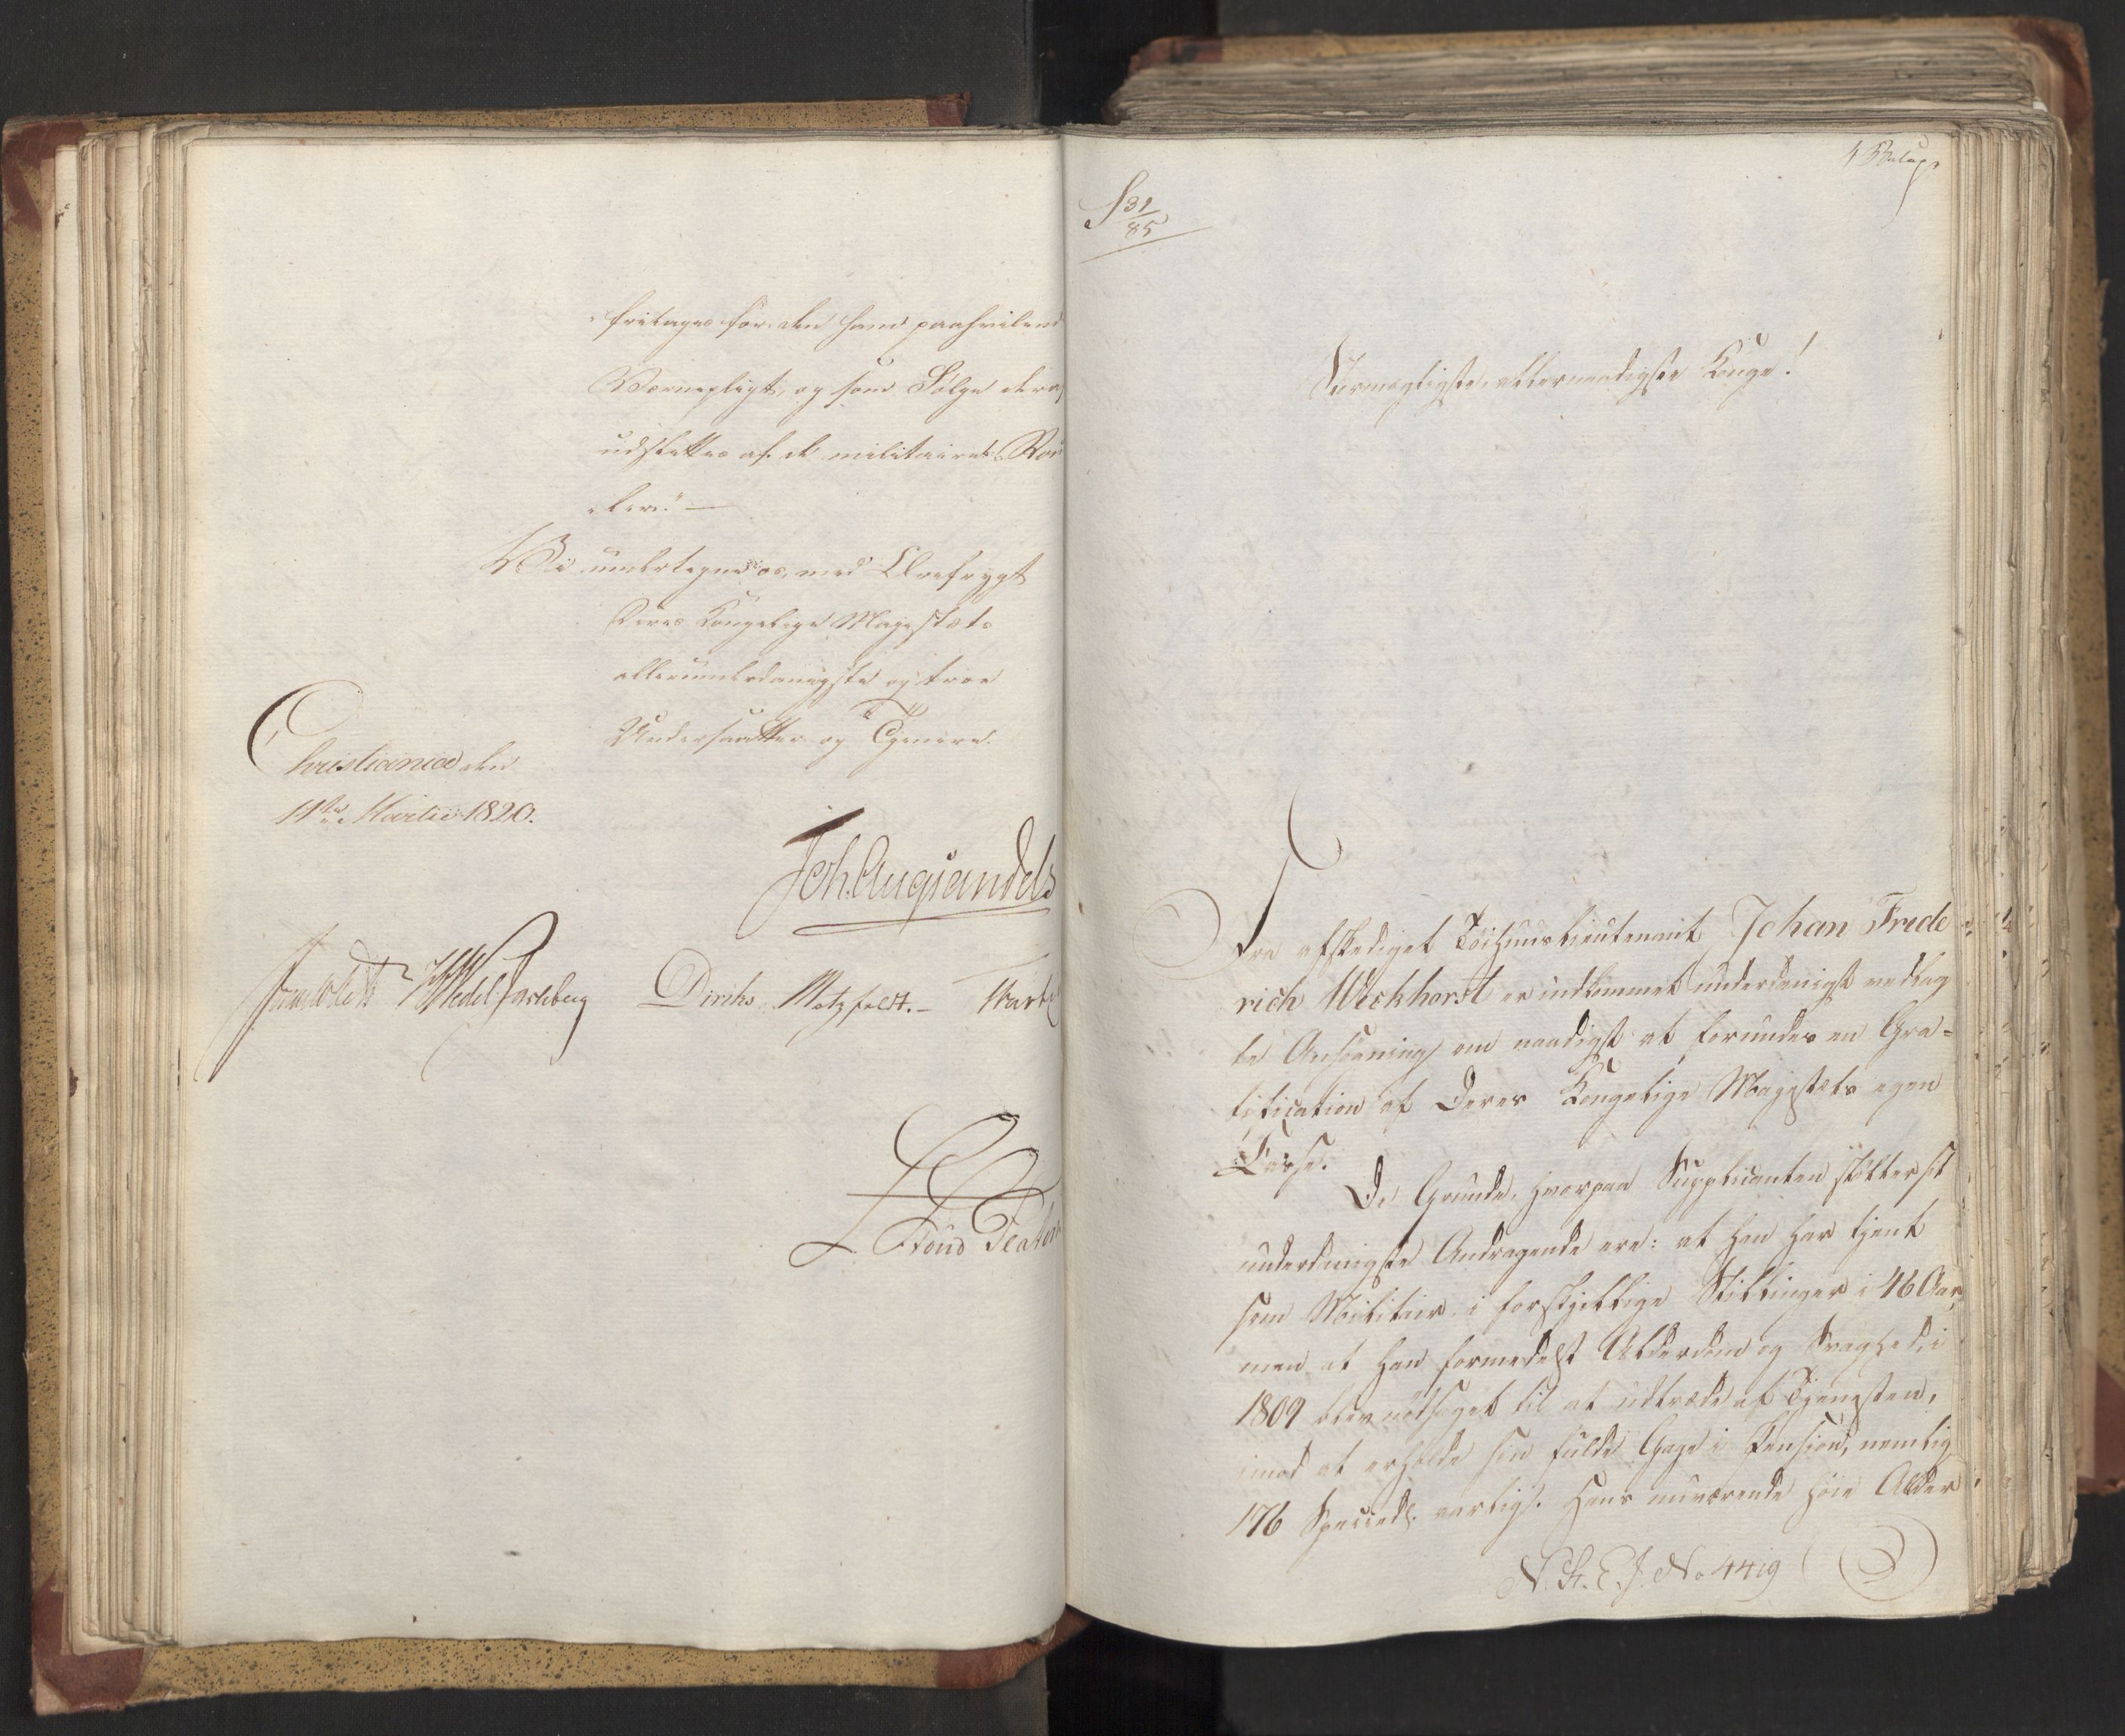 fritages for den ham paahvilend
Værnepligt, og som Følge deraf
udslettes af de militaire Rul
„ler." —
Vi undertegne os, med Ærefrygt
Deres Kongelige Majestæts
allerunderdanigste og troe
Undersaatter og Tjenere.
Christiania den
11te Martii 1820.
Joh. Aug Sandels
HWedel Jarlsberg Diriks Motzfeldt.—
S 31/85
4 Bilage
Stormægtigste, allernaadigste Konge!
Fra afskediget Töihuuslieutenant Johan Frede
rich Weckhorst er indkommet underdanigst vedlag
te Ansøgning om naadigst at forundes en Gra=
tification af Deres Kongelige Majestæts egen
Casse.
De Grunde, hvorpaa Supplicanten støtter sit
underdanigste Andragende ere: at han har tjent
som Militair i forskjellige Stillinger i 46 Aar,
men at han formedelst Alderdom og Svaghed, i
1809 blev nødsaget til at udtræde af Tjenesten,
imod at erholde sin fulde Gage i Pension, nemlig
176 Speciedl. aarlig. Hans nuværende høie Alder
N. St. E. J. No 4419